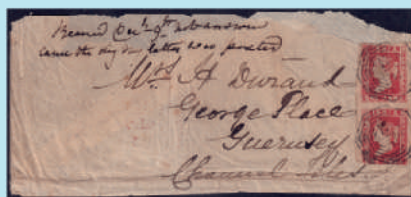 Received Decr 9th
came the day letter was posted
Mrs A Durand
George Place
Guernsey
Channel Isles